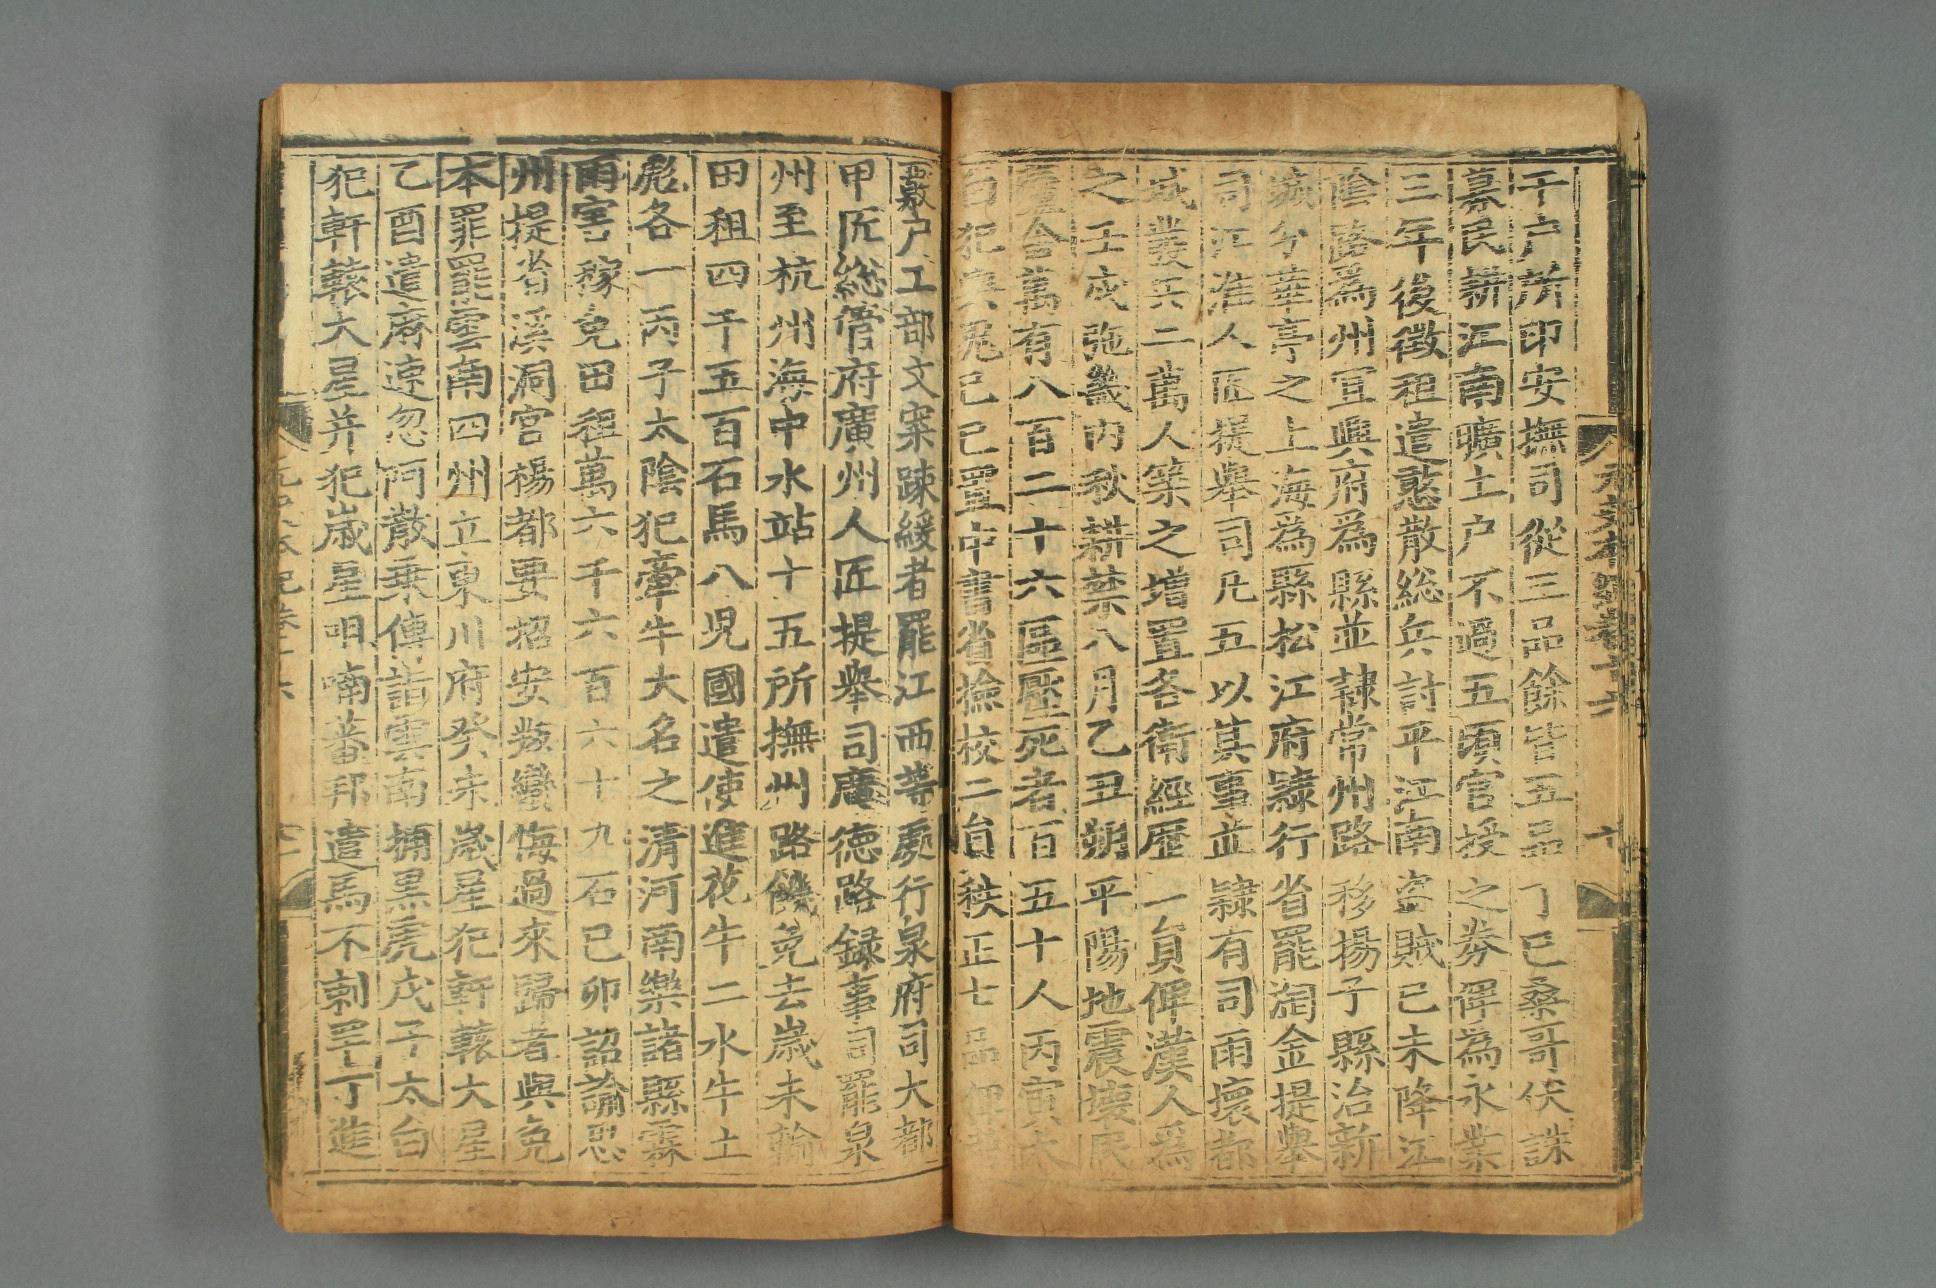 千户所印安撫司從三品餘皆五品丁巳桑哥伏誅
募民耕江南曠土户不過五頃官授之券俾為永業
三年後徵租遣憨散総兵討平江南盗賊己未降江
陰路爲州宜興府爲縣並隷常州路移揚子縣治新
城分華亭之上海為縣松江府隷行省罷淘金提舉
司江淮人匠提舉司凢五以其事並隷有司雨壞都
城發兵二萬人築之增置各衛經歴一負俾漢人爲
之壬戌弛畿内秋耕禁八月乙丑朔平陽地震壞民
廬舍萬有八百二十六區壓死者百五十人丙寅太
白犯輿鬼己巳置中書省撿校二負秩正七品俾考
覈户工部文案踈緩者罷江西等處行泉府司大都
甲匠総管府廣州人匠提舉司廣德路録事司罷泉
州至杭州海中水站十五所撫州路饑免去歲未輸
田租四千五百石馬八児國遣使進花牛二水牛土
彪各一丙子太陰犯牽牛大名之清河南樂諸縣霖
雨害稼免田租萬六千六百六十九石己卯詔諭思
州提省溪洞官楊都要招安叛蠻悔過來歸者與免
本罪罷雲南四州立東川府癸未歲星犯軒轅大星
乙酉遣麻速忽阿散乗傳詣雲南捕黒虎戊子太白
犯軒轅大星并犯歲星咀喃藩邦遣馬不剌罕丁進